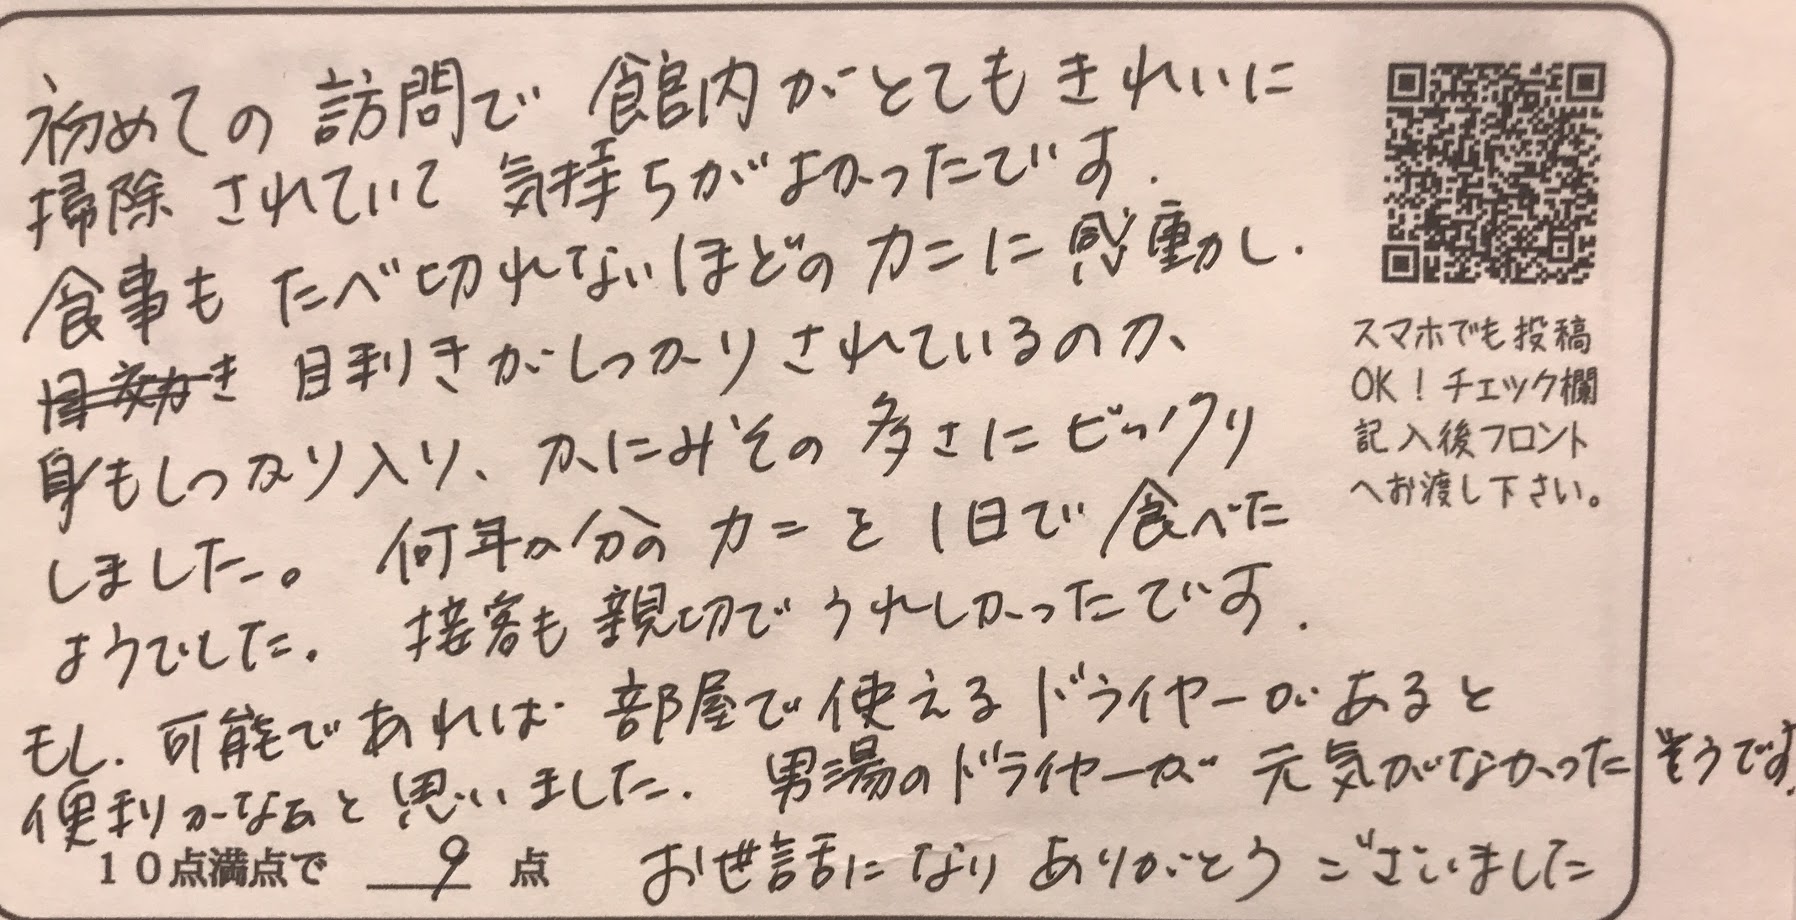 初めての訪問で館内がとてもきれいに
掃除されていて気持ちがよかったです.
食事もたべ切れないほどのカニに感動し.
目利きがしっかりされているのか、
身もしっかり入り、かにみその多さにビックリ
しました。何年か分のカニを1日で食べた
ようでした. 接客も親切でうれしかったです.
もし. 可能であれば部屋で使えるドライヤーがあると
便利かなぁと思いました. 男湯のドライヤーが元気がなかったそうです.
10点満点で 9 点 お世話になりありがとうございました
スマホでも投稿
OK！チェック欄
記入後フロント
へお渡し下さい。